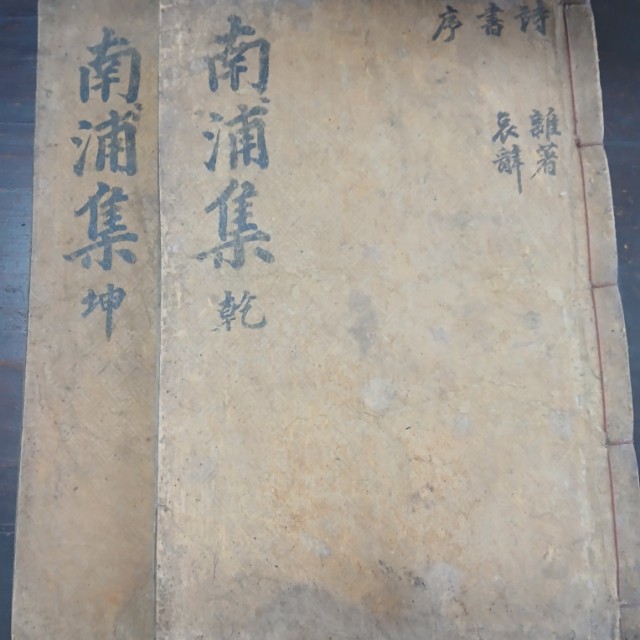 詩書序
雜著
哀辭
南浦集 乾
南浦集 坤